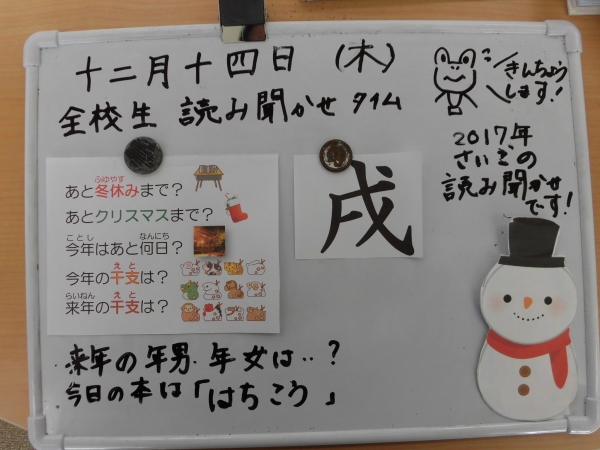 十二月十四日 (木)
全校生 読み聞かせ タイム
きんちょう
します!
2017年
さいごの
読み聞かせ
です!
ふゆやす
あと冬休みまで?
あとクリスマスまで?
ことし なんにち
今年はあと何日?
えと
今年の干支は?
らいねん えと
来年の干支は?
戌
来年の年男、年女は‥?
今日の本は「はちこう」